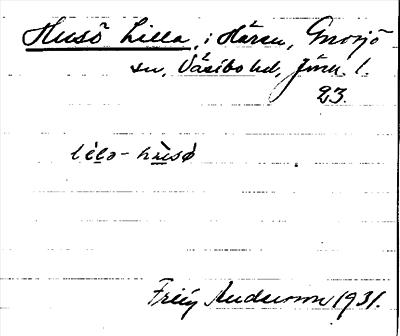 Husö Lilla, i Hären, Gnosjö
sn, Västbo hd, Jönk. l.
23.
lìlə-hùsö
Andersson 1931.